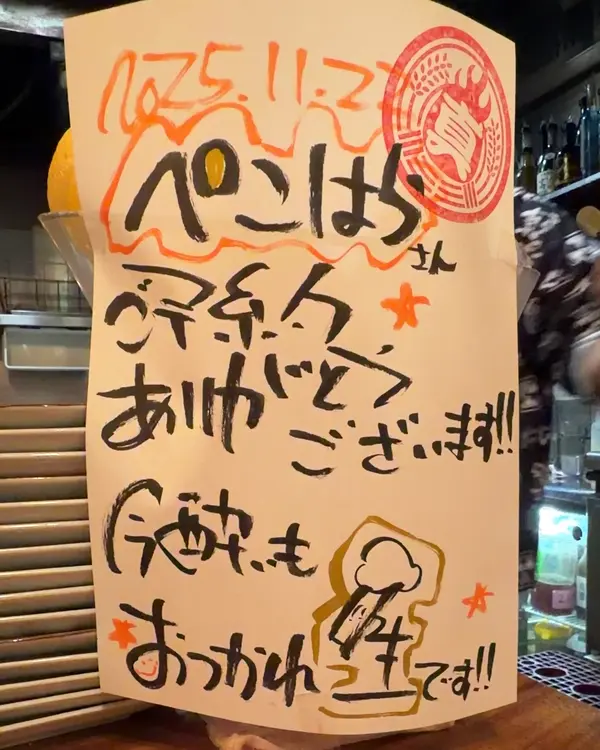 2025.11.22
ぺこはらさん
ご予約
ありがとう
ございます!!
今酔いも
おつかれ生です!!